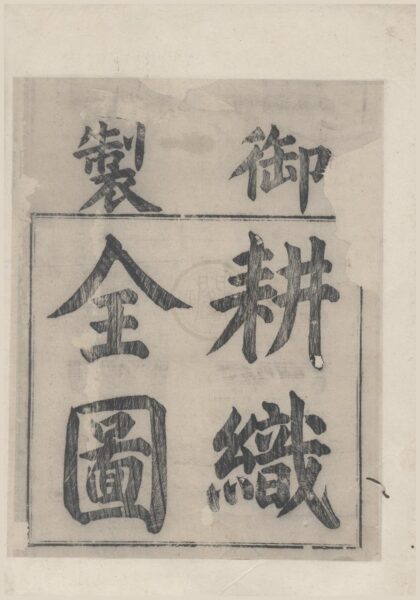 御製
耕織
全圖